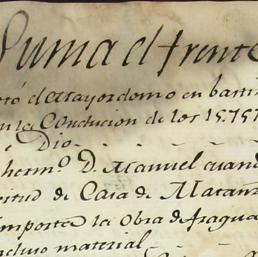 Suma el frente
el Mayordomo en
la Conducion de los 15.757
Dio
herm.º D. Manuel cuand
de Casa de Matanz
importa la Obra de fragua
material